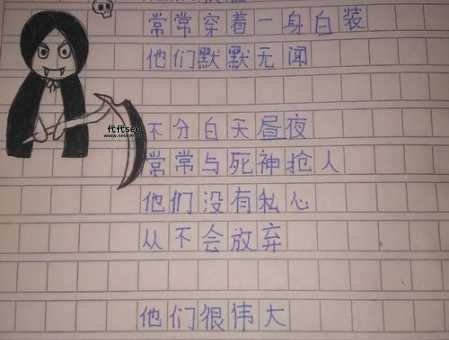 常常穿着一身白装
他们默默无闻
不分白天昼夜
常常与死神抢人
他们没有私心
从不会放弃
他们很伟大